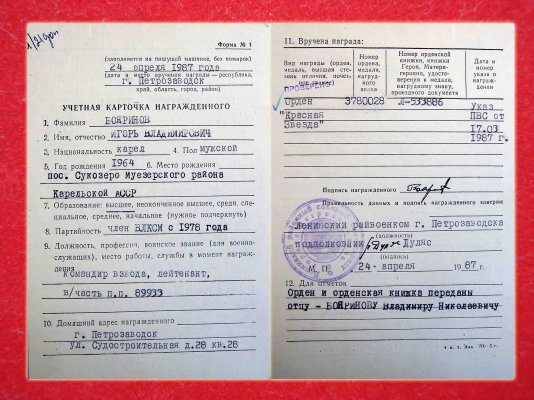 Форма № 1
(заполняется на пишущей машинке, без помарок)
24 апреля 1987 года
(дата и место вручения награды — республика,
г. Петрозаводск
край, область, город, район)
УЧЕТНАЯ КАРТОЧКА НАГРАЖДЕННОГО
1. Фамилия БОЯРИНОВ
2. Имя, отчество ИГОРЬ ВЛАДИМИРОВИЧ
3. Национальность карел 4. Пол мужской
5. Год рождения 1964 6. Место рождения
пос. Сукозеро Муезерского района
Карельской АССР
7. Образование: высшее, неоконченное высшее, среднее, спе-
циальное, среднее, начальное (нужное подчеркнуть)
8. Партийность член ВЛКСМ с 1978 года
9. Должность, профессия, воинское звание (для военно-
служащих), место работы, службы в момент награж-
дения
командир взвода, лейтенант,
в/часть п.п. 89933
10. Домашний адрес награжденного
г. Петрозаводск
ул. Судостроительная д.28 кв.28
11. Вручена награда:
Вид награды (орден, медаль, высшая степень отличия, почетное звание)
Номер ордена, медали, нагрудного знака
Номер орденской книжки, книжки Героя, Матери-героини, удостоверения к медали, нагрудному знаку, проездного документа
Дата и номер указа о награждении
ПРОВЕРЕНО
Орден 3780028 Л-533886 Указ
"Красная ПВС от
Звезда" 17.03
1987 г.
Подпись награжденного
Правильность данных и подпись награжденного заверяю
Ленинский райвоенком г. Петрозаводска
(должность)
подполковник Дуляс
(подпись)
М. П. 24 апреля 1987 г.
12. Для отметок
Орден и орденская книжка переданы
отцу - БОЯРИНОВУ Владимиру Николаевичу